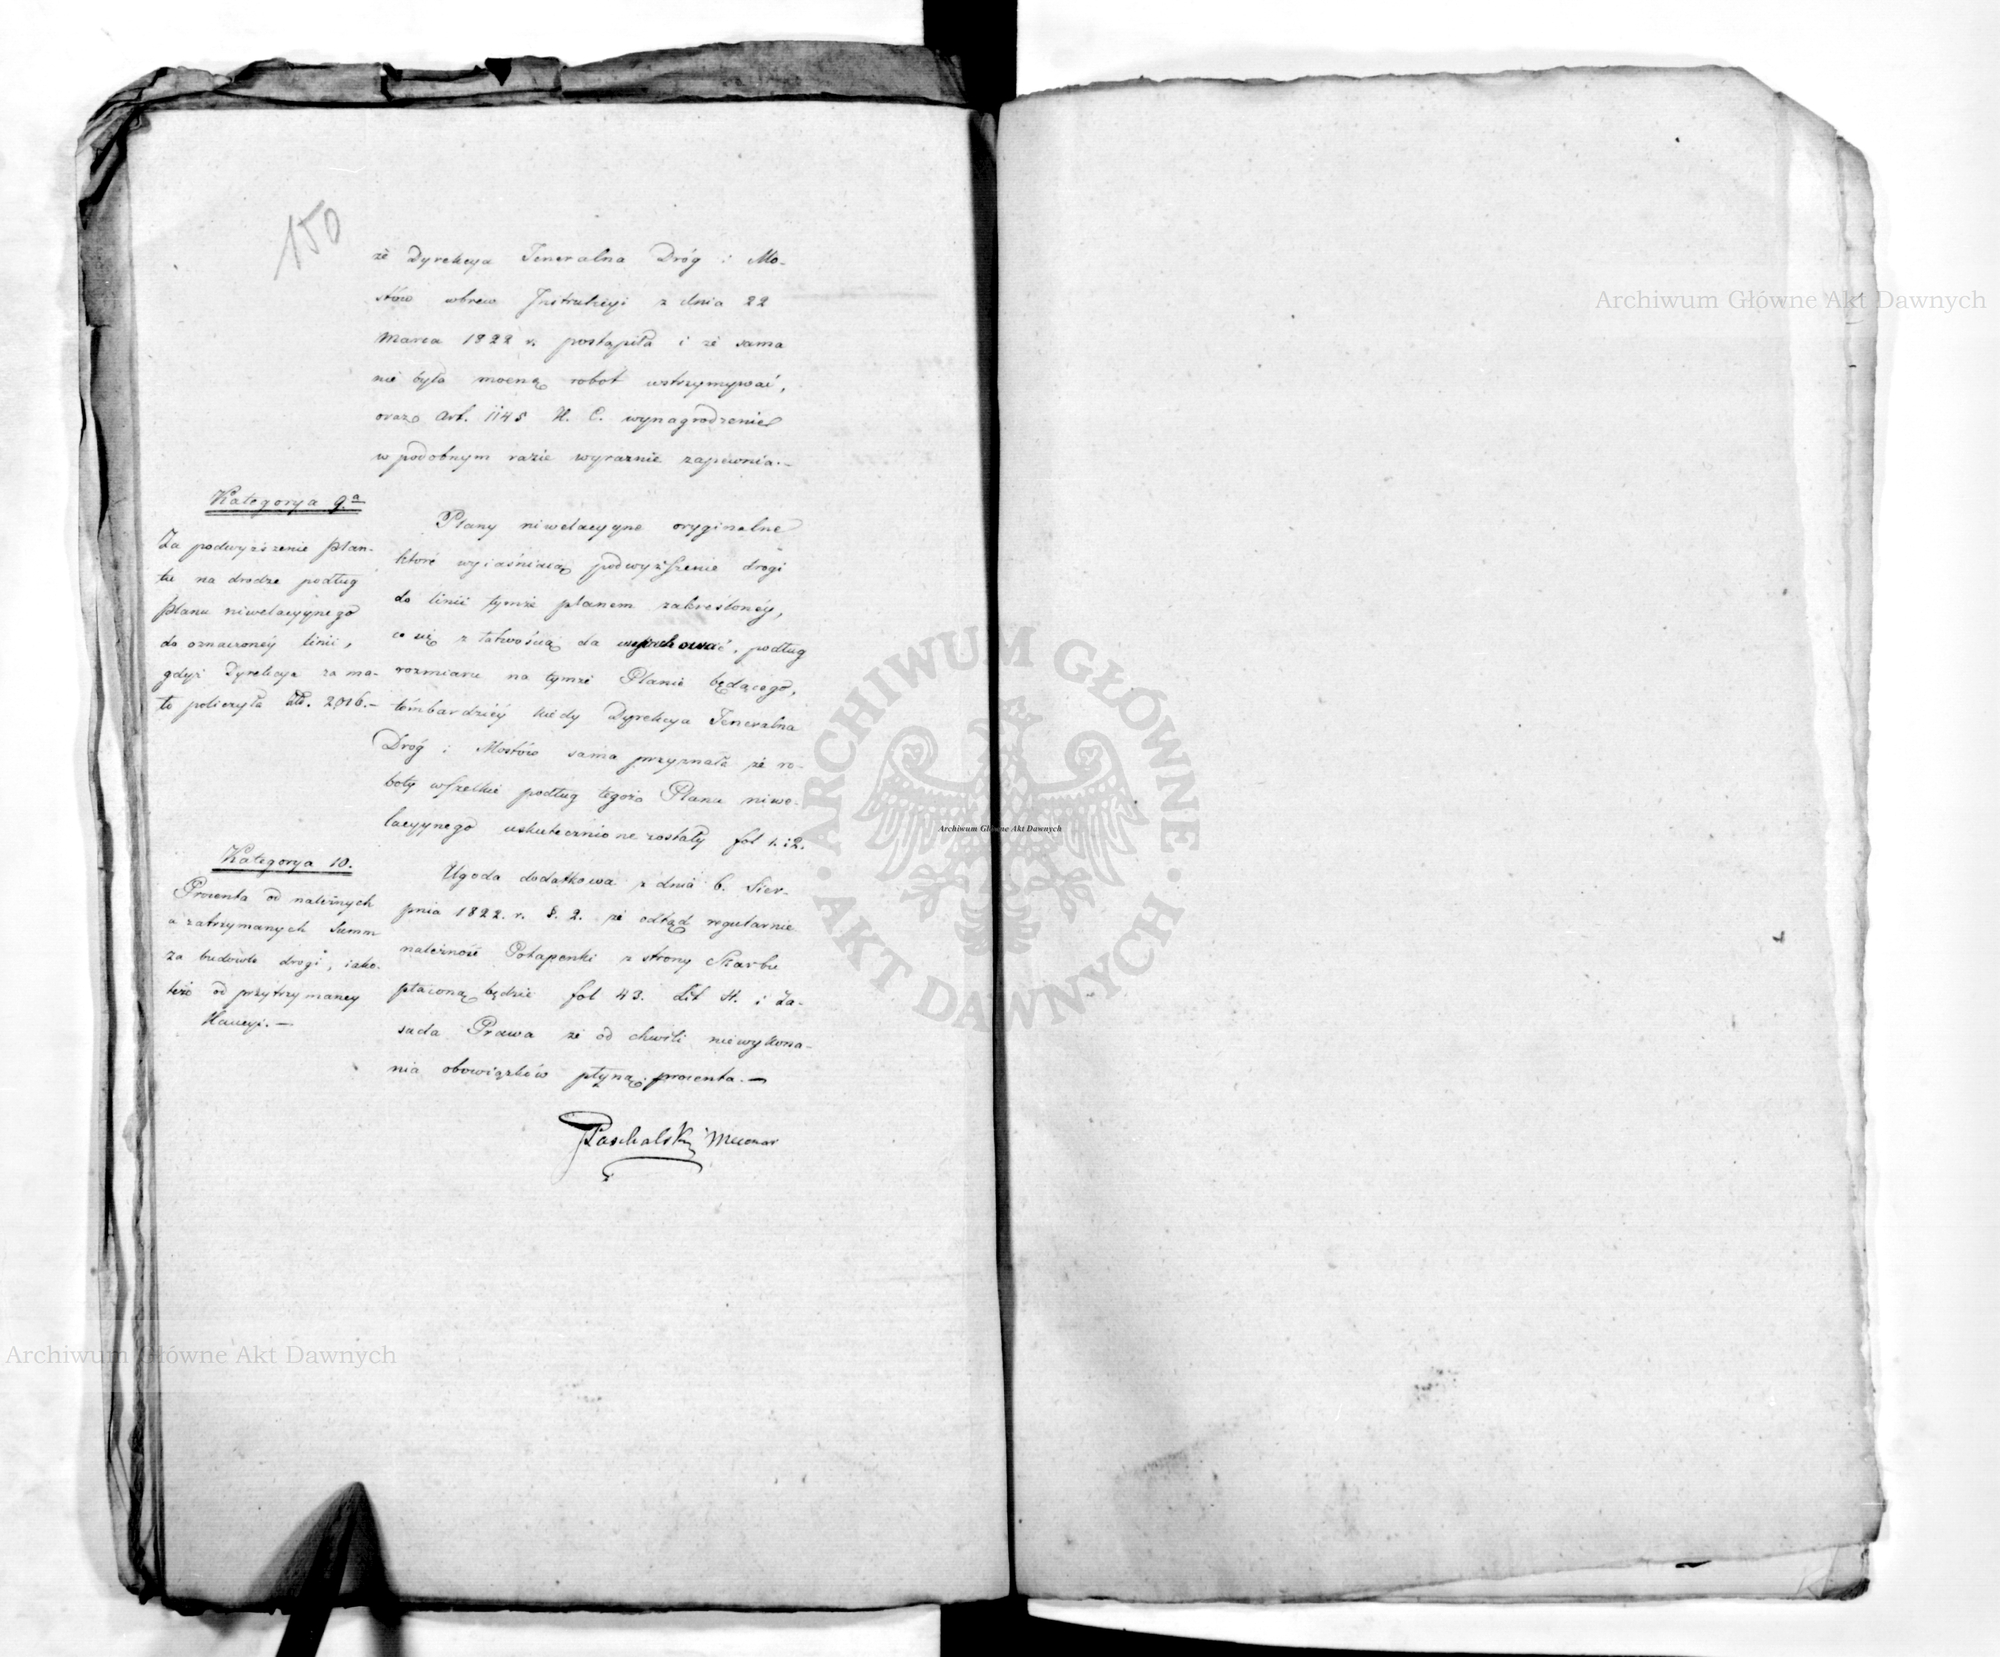 150
że Dyrekcya Jeneralna Dróg i Mo-
stów wbrew Instrukcyi z dnia 22
Marca 1822 r. postąpiła i że sama
nie była mocną robot wstrzymywać,
oraz Art. 1145 K. C. wynagrodzenie
w podobnym razie wyraznie zapewnia.-
Kategorya 9.a
Za podwyższenie Plan-
tu na drodze podług
Planu niwelacyjnego
do oznaczoney linii,
gdyż Dyrekcya za ma-
ło policzyła Złt. 2016.-
Plany niwelacyjne oryginalne
które wyiaśniaią podwyższenie drogi
do linii tymże planem zakreśloney,
co się z łatwością da wyrachować, podług
rozmiaru na tymże Planie będącego,
tembardziey kiedy Dyrekcya Jeneralna
Dróg i Mostów sama przyznała że ro-
boty wszelkie podług tegoż Planu niwe-
lacyjnego uskutecznione zostały fol 1. i 2.
Kategorya 10.
Procenta od należnych
a zatrzymanych Summ
za budowle drogi, iako-
też od przytrzymaney
Kaucyi.-
Ugoda dodatkowa z dnia 6. Sier-
pnia 1822. r. §. 2. że odtąd regularnie
należność Potapenki z strony Skarbu
płaconą będzie fol 43. Lit H. i Za-
sada Prawa że od chwili niewykona-
nia obowiązków płyną procenta.-
Paschalski Mecenas
Archiwum Główne Akt Dawnych
ARCHIWUM GŁÓWNE
AKT DAWNYCH
Archiwum Główne Akt Dawnych
Archiwum Główne Akt Dawnych